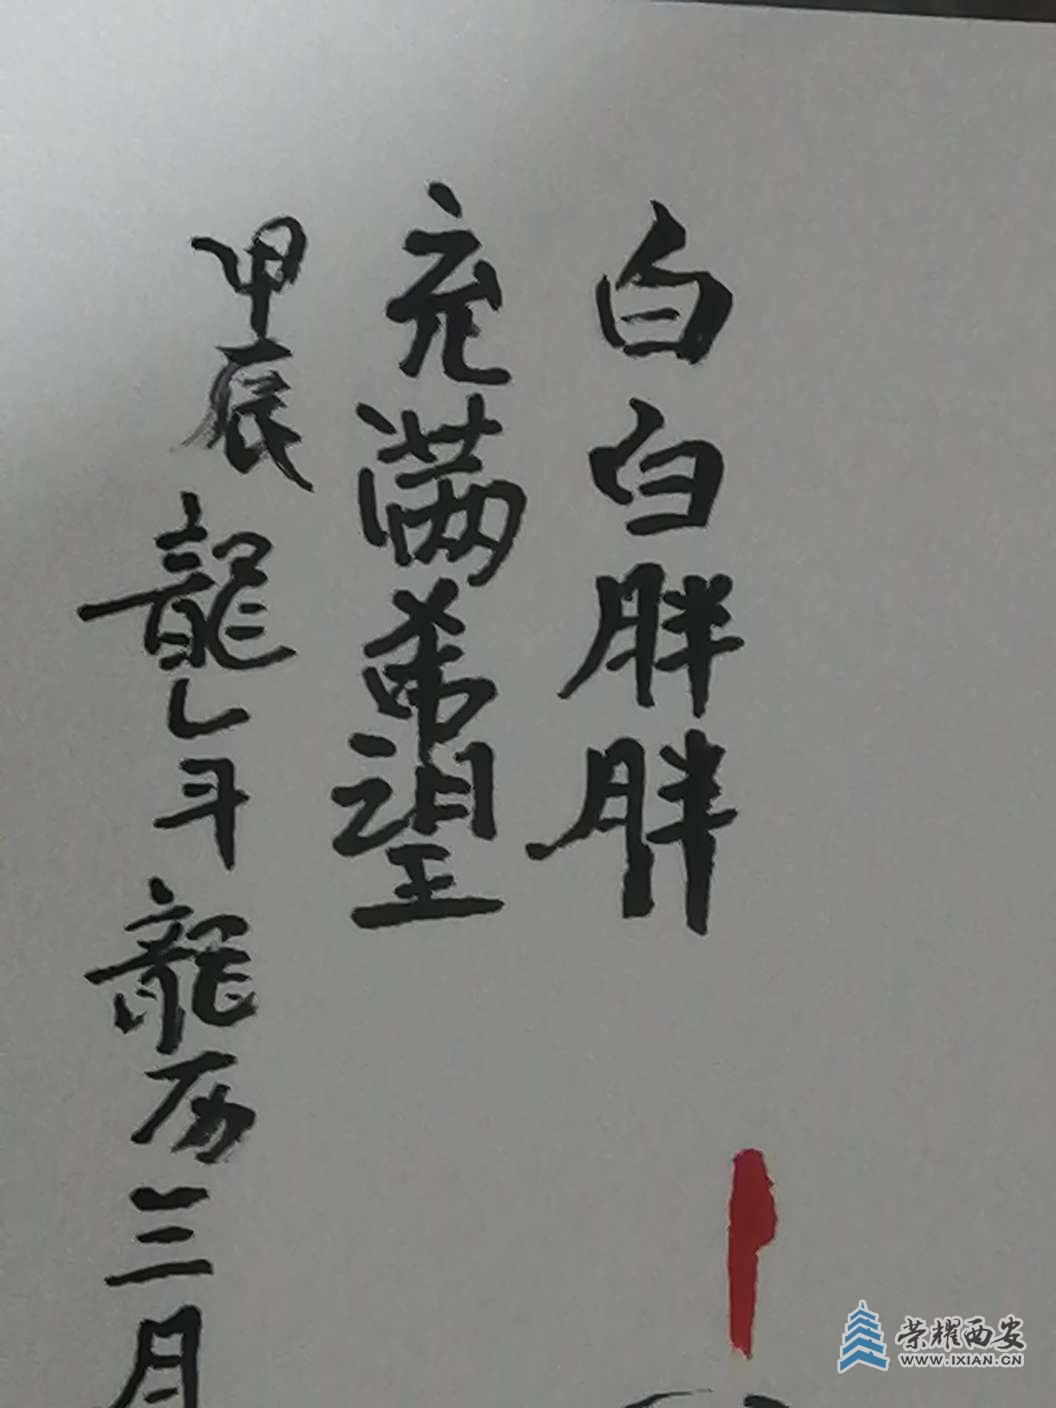 白白胖胖
充满希望
甲辰龍年龍历三月
荣耀西安
WWW.IXIAN.CN